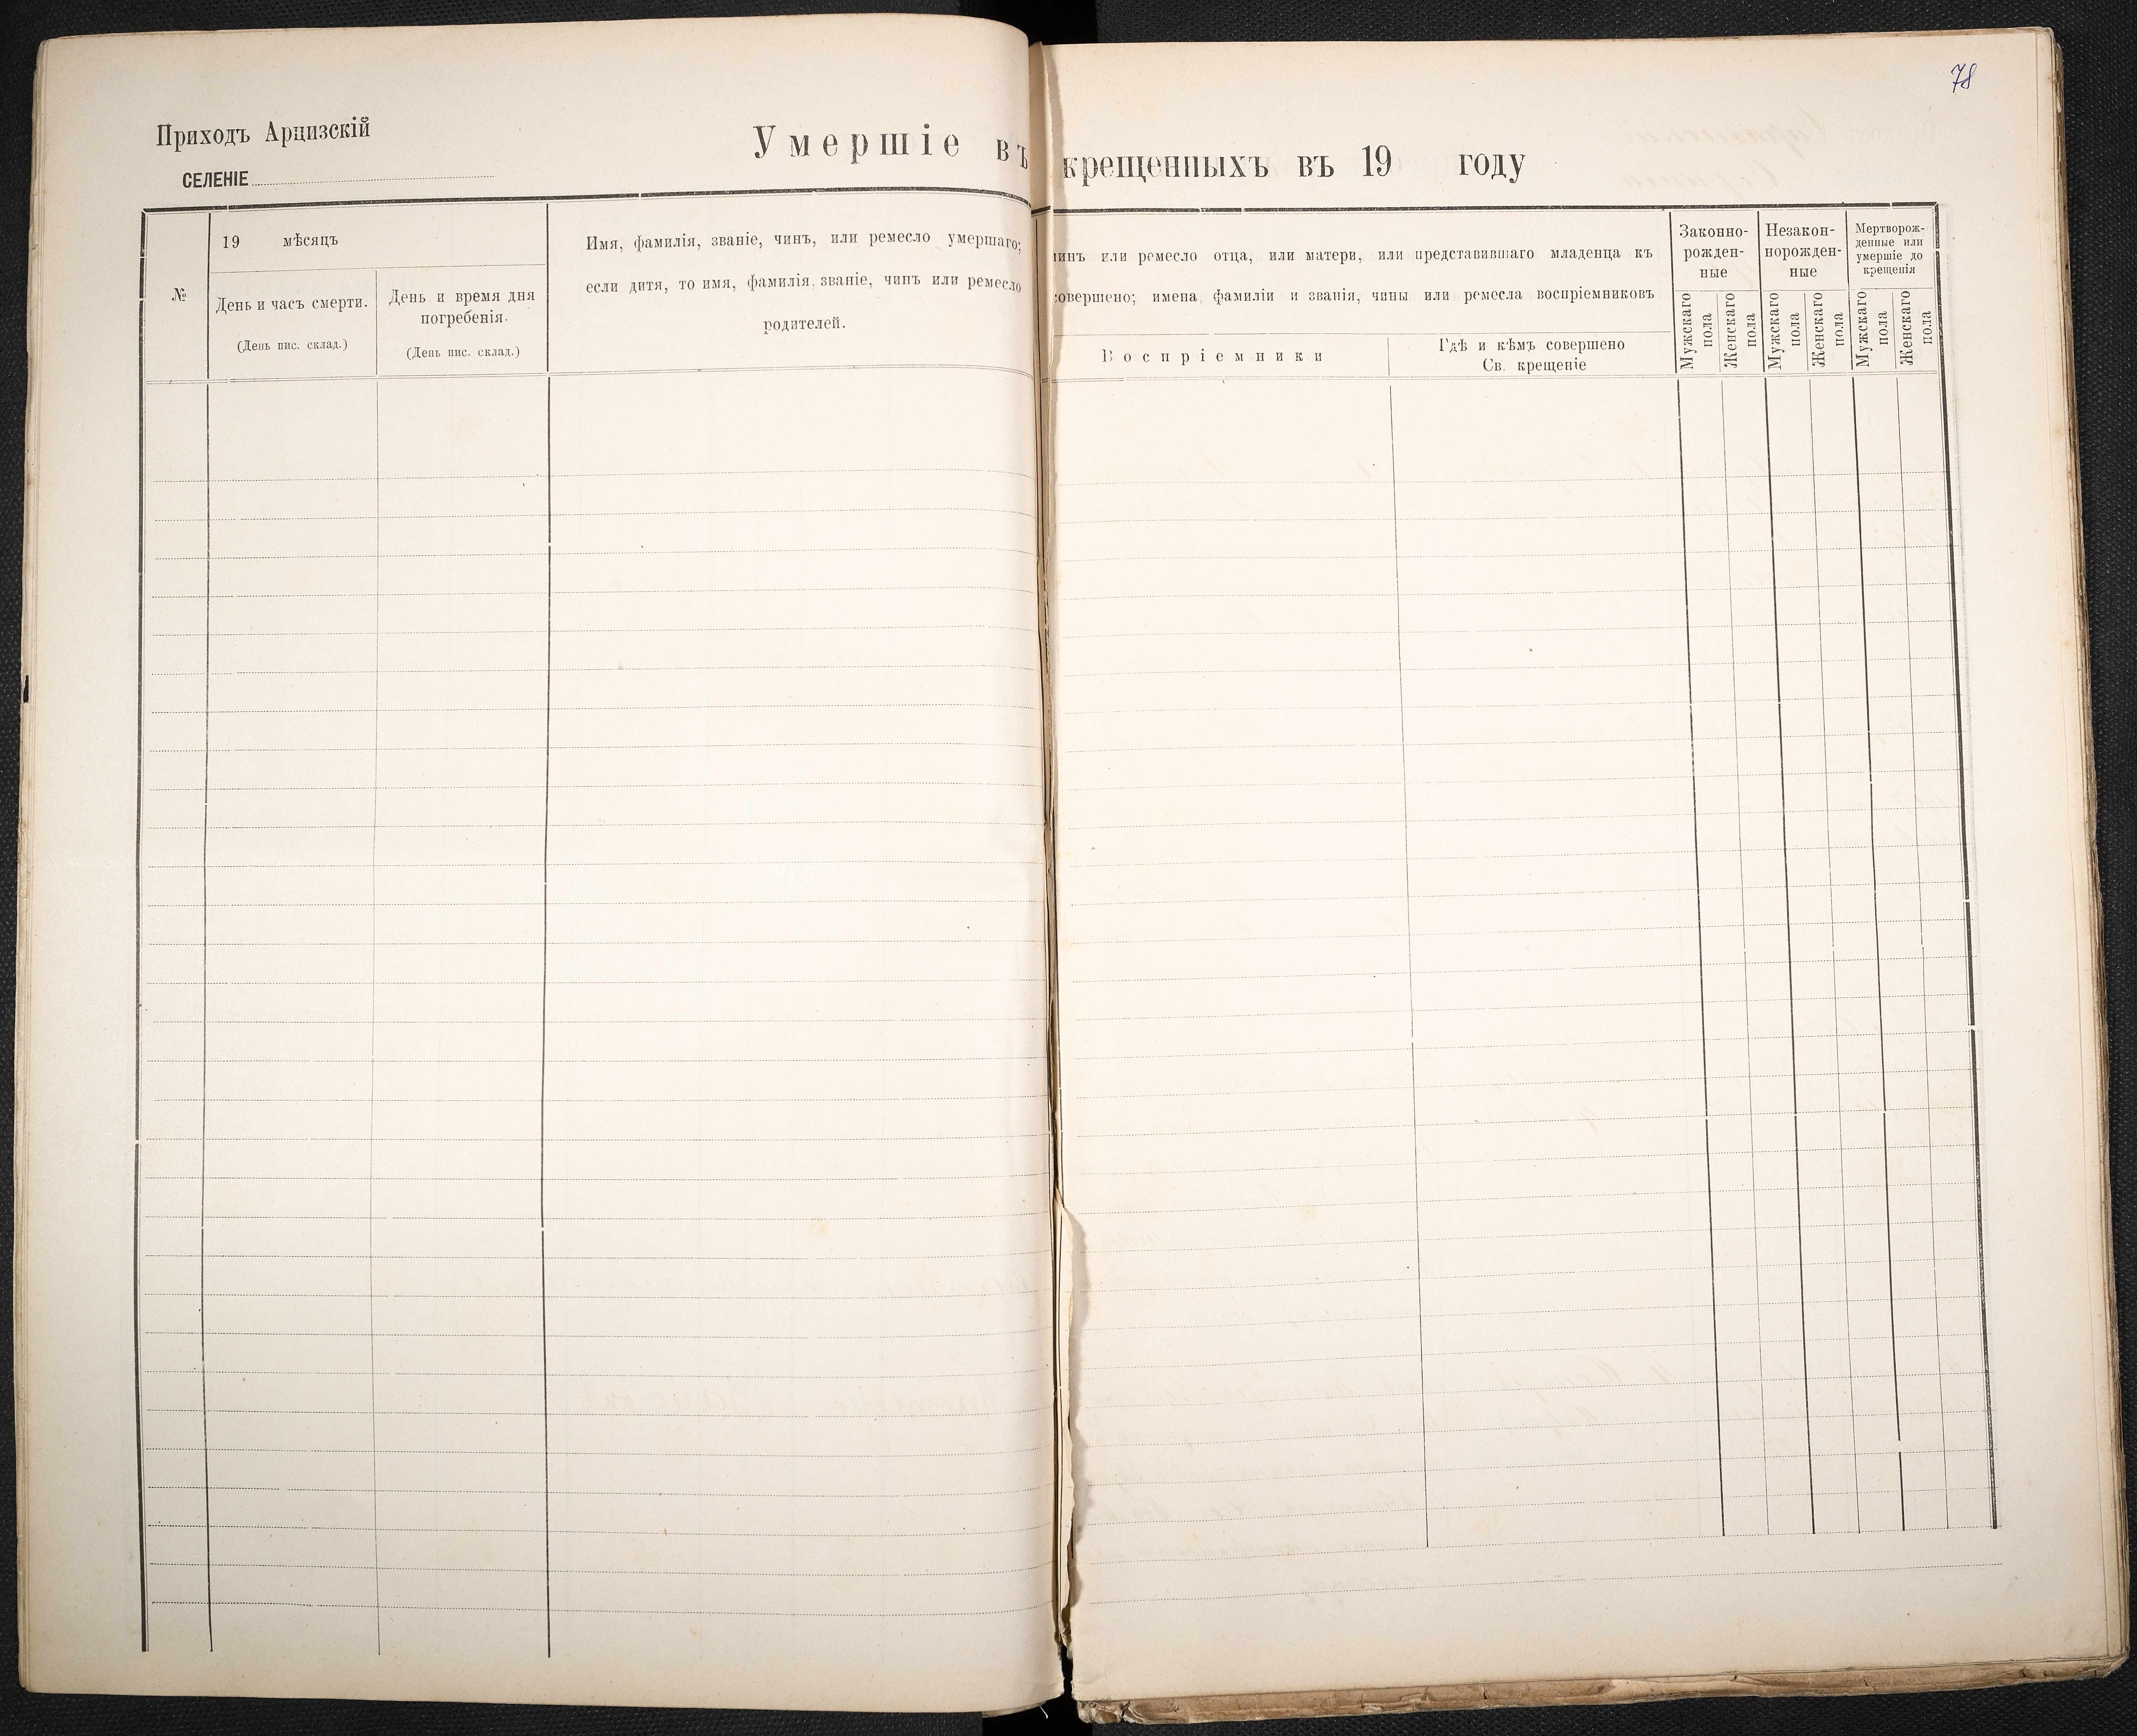 78
Приходъ Арцизскій
СЕЛЕНІЕ
Умершіе въ
№
19 мѣсяцъ
День и часъ смерти.
(День пис. склад.)
День и время дня
погребенія.
(День пис. склад.)
Имя, фамилія, званіе, чинъ, или ремесло умершаго;
если дитя, то имя, фамилія, званіе, чинъ или ремесло
родителей.
крещенныхъ въ 19 году
чинъ или ремесло отца, или матери, или представившаго младенца къ
совершено; имена, фамиліи и званія, чины или ремесла воспріемниковъ
Воспріемники
Гдѣ и кѣмъ совершено
Св. крещеніе
Законно-
рожден-
ные
Незакон-
норожден-
ные
Мертворож-
денные или
умершіе до
крещенія
Мужскаго
пола
Женскаго
пола
Мужскаго
пола
Женскаго
пола
Мужскаго
пола
Женскаго
пола